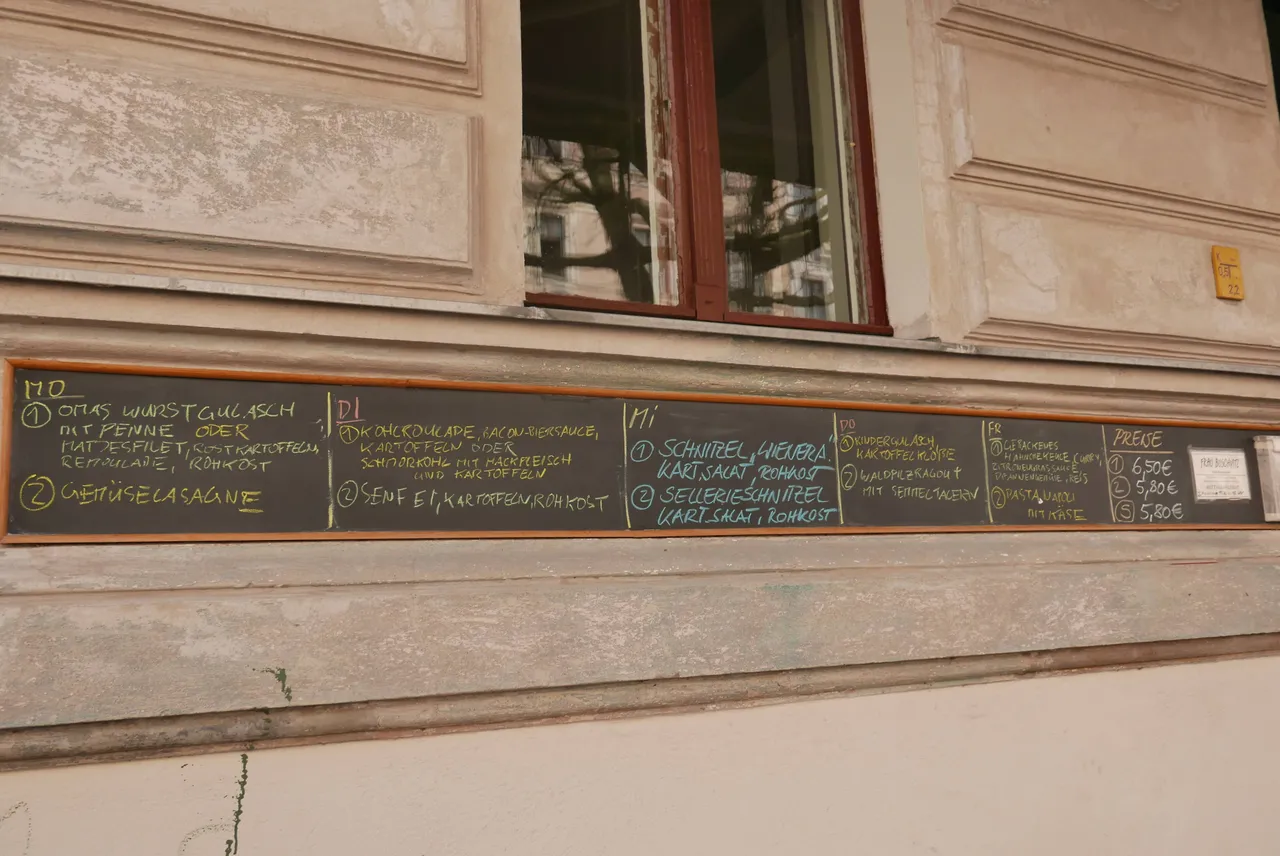 MO
① OMAS WURSTGULASCH
MIT PENNE ODER
MATJESFILET, ROSTKARTOFFELN,
REMOULADE, ROHKOST
② GEMÜSELASAGNE
DI
① KOHLROULADE, BACON-BIERSAUCE,
KARTOFFELN ODER
SCHMORKOHL MIT HACKFLEISCH
UND KARTOFFELN
② SENFEI, KARTOFFELN, ROHKOST
Mi
① SCHNITZEL „WIENER A."
KART.SALAT, ROHKOST
② SELLERIESCHNITZEL
KART.SALAT, ROHKOST
DO
① KINDERGULASCH,
KARTOFFELKLÖßE
② WALDPILZRAGOUT
MIT SEMMELTALERN
FR
① GEBACKENES
CURRY,
REIS
② PASTA NAPOLI
MIT KÄSE
PREISE
① 6,50€
② 5,80€
Ⓢ 5,80€
FRAU BUSCHART
K
0,5
2,2